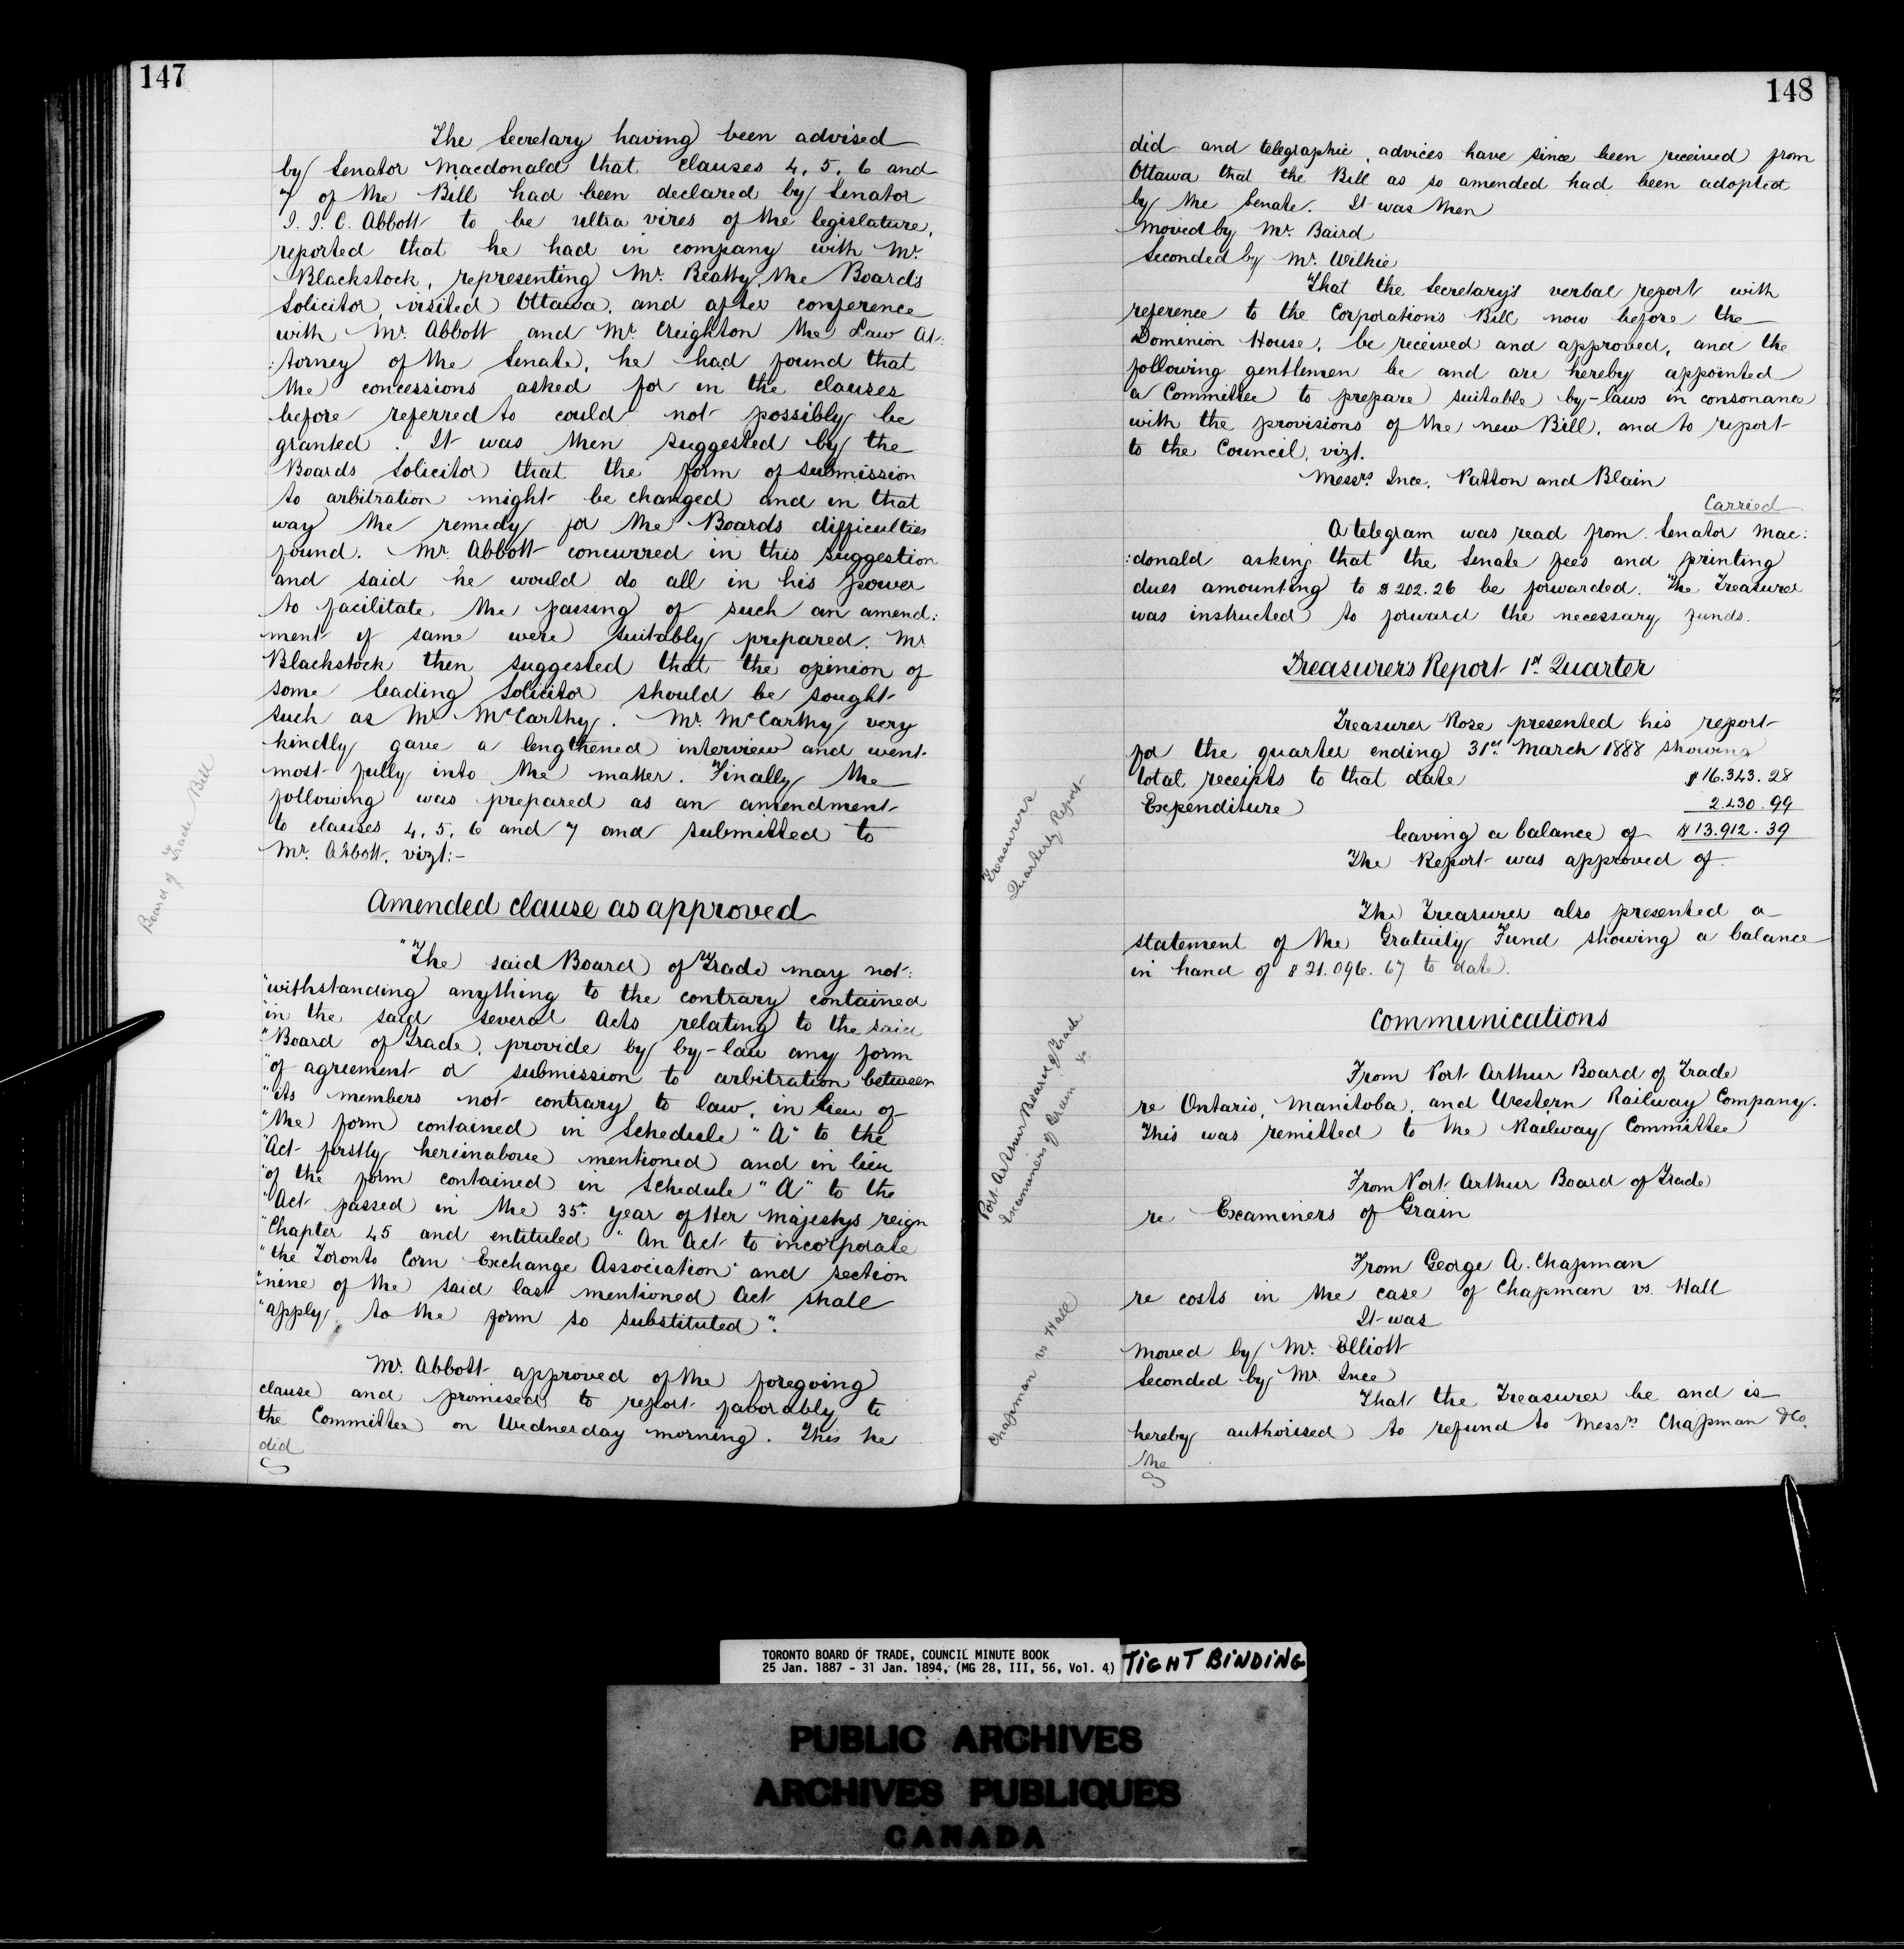 147
The Secretary having been advised
by Senator Macdonald that clauses 4, 5, 6 and
7 of the Bill had been declared by Senator
J. J. C. Abbott to be ultra vires of the legislature,
reported that he had in company with Mr.
Blackstock, representing Mr. Beatty, the Board's
Solicitor, visited Ottawa, and after conference
with Mr. Abbott and Mr. Creighton the Law At:
:torney of the Senate, he had found that
the concessions asked for in the clauses
before referred to could not possibly be
granted. It was then suggested by the
Boards Solicitor that the form of submission
to arbitration might be changed and in that
way the remedy for the Boards difficulties
found. Mr. Abbott concurred in this suggestion
and said he would do all in his power
to facilitate the passing of such an amend:
ment if same were suitably prepared. Mr
Blackstock then suggested that the opinion of
some leading Solicitor should be sought
such as Mr. McCarthy. Mr. McCarthy very
kindly gave a lengthened interview and went
most fully into the matter. Finally the
following was prepared as an amendment
to clauses 4, 5, 6 and 7 and submitted to
Mr. Abbott, vizt:-
Board of Trade Bill
Amended clause as approved
"The said Board of Trade may not:
"withstanding anything to the contrary contained
"in the said several Acts relating to the said
"Board of Trade, provide by by-law any form
"of agreement or submission to arbitration between
"its members not contrary to law, in lieu of
"the form contained in Schedule "A" to the
"Act firstly hereinabove mentioned and in lieu
"of the form contained in Schedule "A" to the
"Act passed in the 35th year of Her Majestys reign
"Chapter 45 and entituled "An Act to incorporate
"the Toronto Corn Exchange Association" and section
"nine of the said last mentioned Act shall
"apply to the form so substituted".
Mr. Abbott approved of the foregoing
clause and promised to report favorably to
the Committee on Wednesday morning. This he
did
148
did and telegraphic advices have since been received from
Ottawa that the Bill as so amended had been adopted
by the Senate. It was then
Moved by Mr. Baird
Seconded by Mr. Wilkie
That the Secretary's verbal report with
reference to the Corporations Bill now before the
Dominion House, be received and approved, and the
following gentlemen be and are hereby appointed
a Committee to prepare suitable by-laws in consonance
with the provisions of the new Bill, and to report
to the Council, vizt.
Messrs. Ince, Patton and Blain
Carried
A telegram was read from Senator Mac:
:donald asking that the Senate fees and printing
dues amounting to $202.26 be forwarded. The Treasurer
was instructed to forward the necessary funds.
Treasurer's Report 1st Quarter
Treasurer Rose presented his report
for the quarter ending 31st March 1888 showing
total receipts to that date $16.343.28
Expenditure 2.430.99
leaving a balance of $13.912.39
The Report was approved of
Treasurers
Quarterly Report
The Treasurer also presented a
statement of the Gratuity Fund showing a balance
in hand of $21.096.67 to date.
Communications
From Port Arthur Board of Trade
re Ontario, Manitoba, and Western Railway Company.
This was remitted to the Railway Committee
Port Arthur Board of Trade
Examiners of Grain &c
From Port Arthur Board of Trade
re Examiners of Grain
From George A. Chapman
re costs in the case of Chapman vs. Hall
It was
Moved by Mr. Elliott
Seconded by Mr. Ince
Chapman vs Hall
That the Treasurer be and is
hereby authorised to refund to Messrs. Chapman & Co.
the
TORONTO BOARD OF TRADE, COUNCIL MINUTE BOOK
25 Jan. 1887 - 31 Jan. 1894, (MG 28, III, 56, Vol. 4)
TIGHT BINDING
PUBLIC ARCHIVES
ARCHIVES PUBLIQUES
CANADA